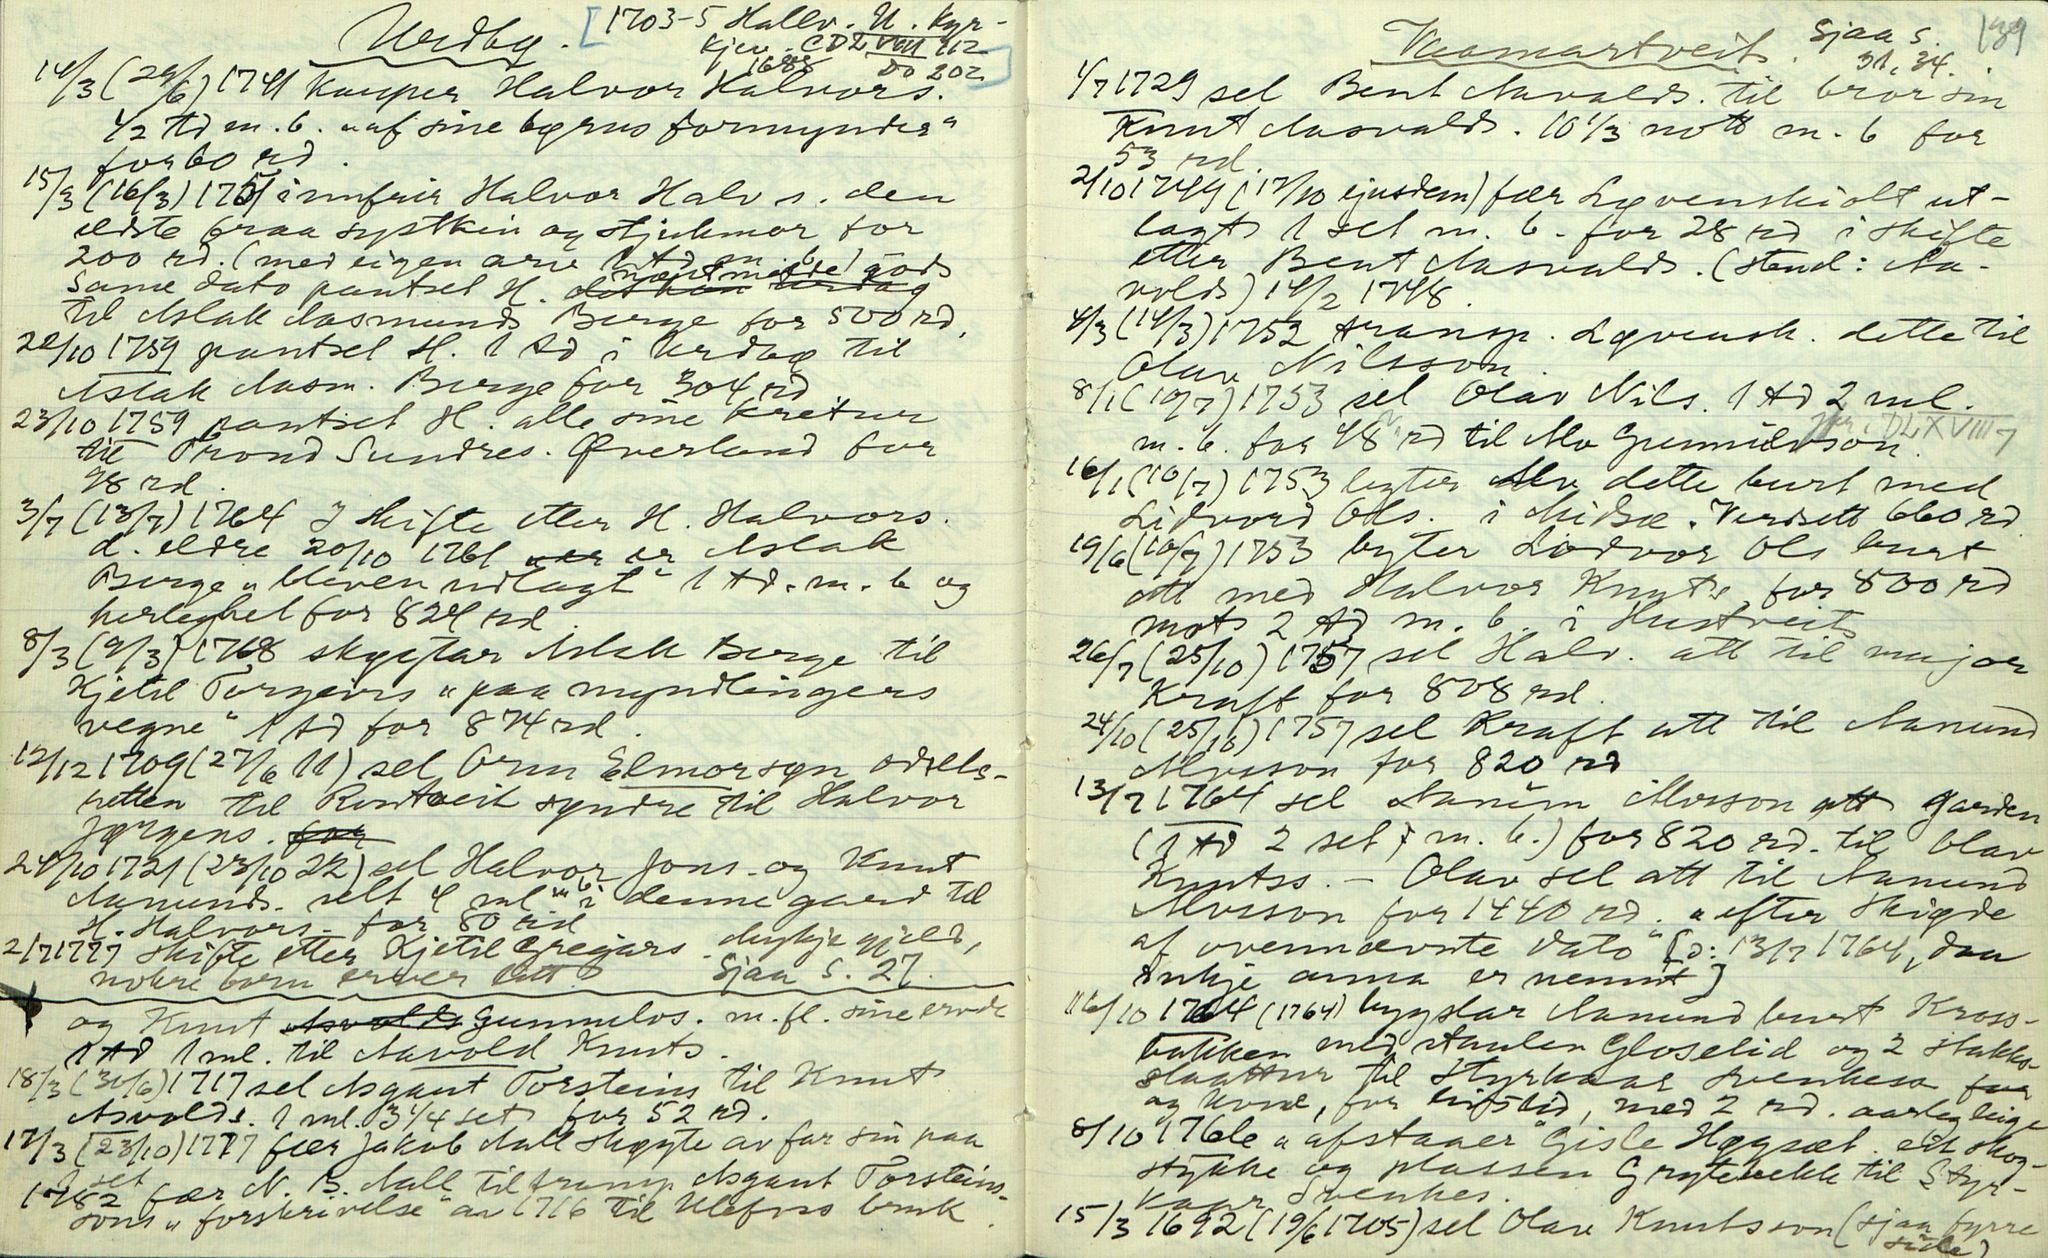 Urdbø. [1703-5 Hallv. U. Kyr-
kjev. CDL VIII 112
1688 Do 202]
14/3 (29/6) 1741 kauper Halvor Halvors.
1/2 td m. b. "af sine børns formynder"
for 60 rd.
15/3 (16/3) 1751 innfrir Halvor Halv s. den
eldste braa systkin og stjukmor for
200 rd. (med eigen arv 1 td m. b.) gods
Same dato pantset H. nemnde
til Aslak Aasmunds Berge for 500 rd.
22/10 1759 pantset H. 1 td i Urdbø til
Aslak Aasm. Berge for 304 rd
23/10 1759 pantset H. alle sine kretur
til Trond Sundres. Øverland for
98 rd.
3/7 (13/7) 1764 I skifte etter H. Halvors.
d. eldre 20/10 1761 er Aslak
Berge "bleven udlagt" 1 td. m. b og
herleghet for 824 rd.
8/3 (9/3) 1768 skøytar Aslak Berge til
Kjetil Torgeirs "paa myndlingers
vegne" 1 td for 874 rd.
12/12 1709 (27/6 11) sel Orm Elmorsøn odels-
retten til Rontveit syndre til Halvor
Jørgens. for
24/10 1721 (23/10 22) sel Halvor Jons. og Knut
Aamunds. selt 4 ml m b i denne gard til
H. Halvors. for 80 rd
2/7 1777 skifte etter Kjetil Gregars. gjeld,
nokre born erver litt Sjaa S. 27.
og Knut Asvolds Gunnulvs. m. fl. sine
1 td 1 ml. til Aavold Knuts.
18/3 (30/6) 1717 sel Asgaut Torsteins til Knut
Asvolds. 1 ml. 3 1/4 set for 52 rd.
17/3 (23/10) 1717 fær Jakob Aall skøyte av far sin paa
2 set
1782 fær N. B. Aall til transp Asgaut Torsteins-
sons "forskrivelse" av 1716 til Ulefoss bruk.
Vaamartveit. Sjaa S. 139
31, 34.
4/7 1729 sel Bent Aavalds. til bror sin
Knut Aasvalds. 10 1/3 nott m. b for
53 rd.
2/10 1749 (17/10 ejusdem) fær Løvenskiolt ut-
lagt 1 set m. b. for 28 rd i skifte
etter Bent Aasvalds. (stend: Aa-
volds) 14/2 1748.
4/3 (14/3) 1752 transp. Løvensk. dette til
Olav Nilsson.
8/1 (10/7) 1753 sel Olav Nils. 1 td 2 ml.
m. b. for 48 rd til Alv Gunnulvson. DLXVIII 7
16/1 (10/7) 1753 byter Alv dette burt med
Lidvord Ols. i Midbø. Verdsett 660 rd
19/6 (10/7) 1753 byter Lidvor Ols burt
att med Halvor Knuts. for 800 rd
mots 2 td m. b. i Hustveit
26/7 (25/10) 1757 sel Halv. att til major
Kraft for 808 rd.
24/10 (25/10) 1757 sel Kraft att til Aamund
Alvsson for 820 rd
13/7 1764 sel Aanun Alvsson att garden
(1 td 2 set m. b.) for 820 rd. til Olav
Knutss. – Olav sel att til Aamund
Alvsson for 1440 rd. "efter skiøde
af ovennævnte dato" [ɔ: 13/7 1764, daa
inkje anna er nemnt]
16/10 1764 (1764) bygslar Aamund burt Kross-
bakken med staulen Gloselid og 2 stakk-
slaattur til Styrkaar Svenkess for
og kone, for livstid, med 2 rd. aarleg leige
8/10 1766 "afstaaer" Gisle Høgsæt eit skog-
stykke og plassen Grytebekk til Styr-
kaar Svenkes.
15/3 1692 (19/6 1705) sel Olav Knutsson (sjaa fyrre
side)